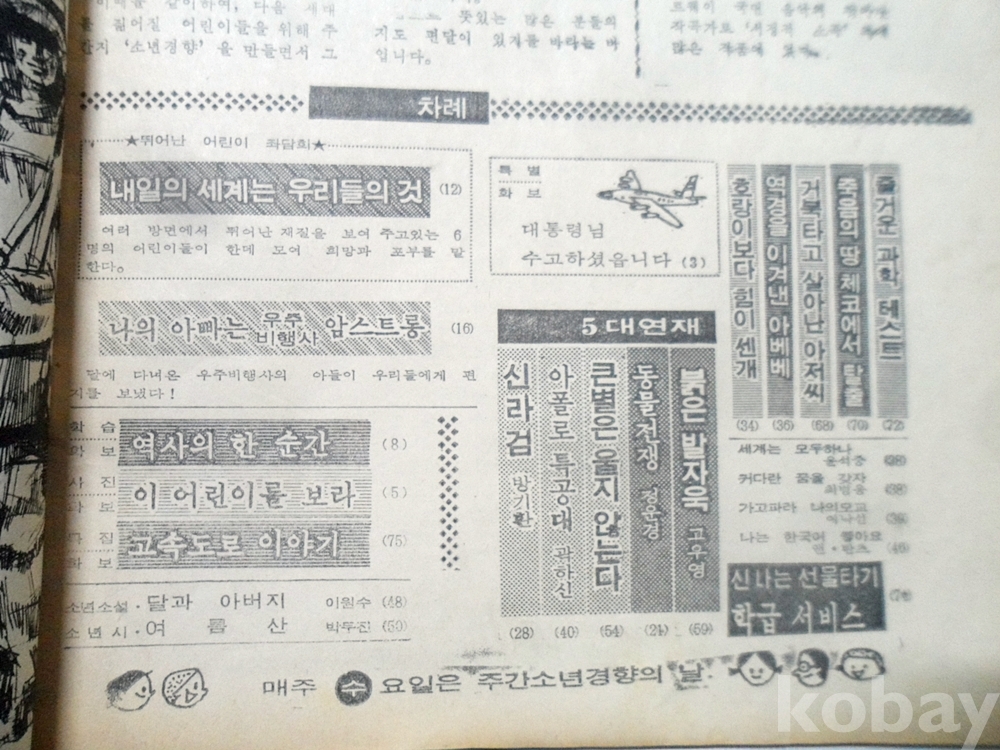 를 짊어질 어린이들을 위해 주
간지 '소년경향'을 만들면서 그
뜻있는 많은 분들의
지도 편달이 있기를 바라는 바
입니다.
차례
★뛰어난 어린이 좌담회★
내일의 세계는 우리들의 것 (12)
여러 방면에서 뛰어난 재질을 보여 주고있는 6
명의 어린이들이 한데 모여 희망과 포부를 말
한다。
나의 아빠는 우주비행사 암스트롱 (16)
달에 다녀온 우주비행사의 아들이 우리들에게 편
지를 보냈다!
학습
화보
역사의 한 순간 (8)
사진
화보
이 어린이를 보라 (5)
특집
화보
고속도로 이야기 (75)
소년소설·달과 아버지 이원수 (48)
소년시·여름 산 박두진 (50)
특별
화보
대통령님
수고하셨읍니다 (3)
5대연재
붉은 발자욱 고우영 (59)
동물전쟁 (21)
큰별은 울지 않는다 (54)
아폴로 특공대 (40)
신라검 방기환 (28)
즐거운 과학 테스트 (72)
죽음의 땅 체코에서 탈출 (70)
거북타고 살아난 아저씨 (68)
역경을 이겨낸 아베베 (36)
호랑이보다 힘이 센 개 (34)
세계는 모두하나
윤석중
커다란 꿈을 갖자
가고파라 나의모교
나는 한국이 좋아요
신나는 선물타기
학급 서비스
매주 수요일은 주간소년경향의 날.
kobay